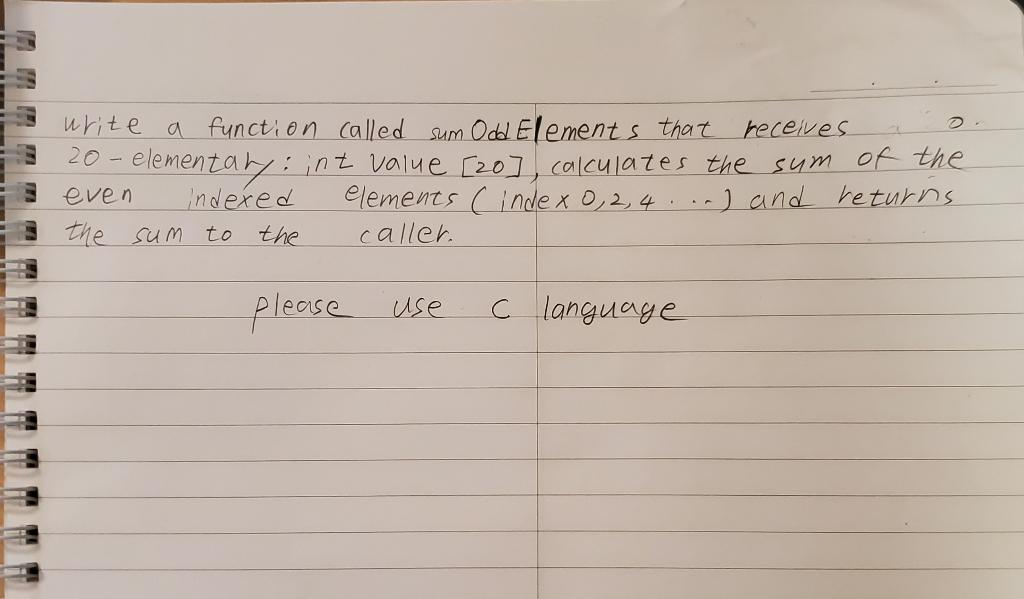 write a function called sum Odd Elements that receives a
20-elementary: int value [20], calculates the sum of the
even indexed elements (index 0,2,4 ...) and returns
the sum to the caller.
please use c language